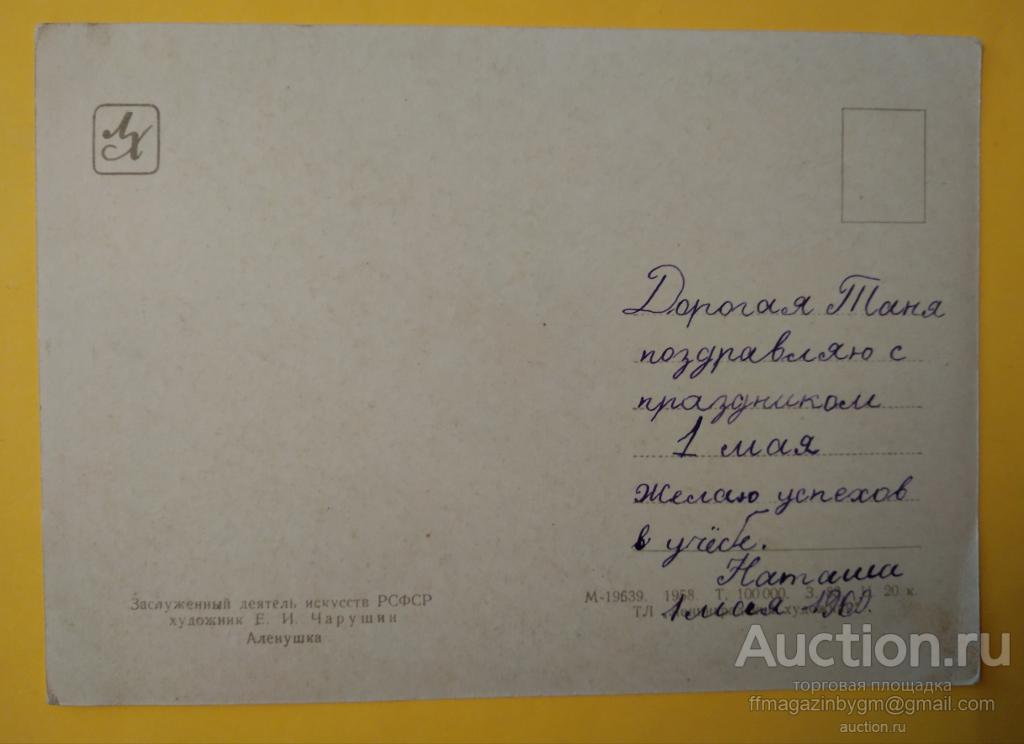 ЛХ
Дорогая Таня
поздравляю с
праздником
1 мая
Желаю успехов
в учёбе.
Наташа
1 мая 1960.
Заслуженный деятель искусств РСФСР
художник Е. И. Чарушин
Аленушка
М-19639. 1958. Т. 100 000. З. 20 к.
ТЛ
Auction.ru
торговая площадка
ffmagazinbygm@gmail.com
auction.ru